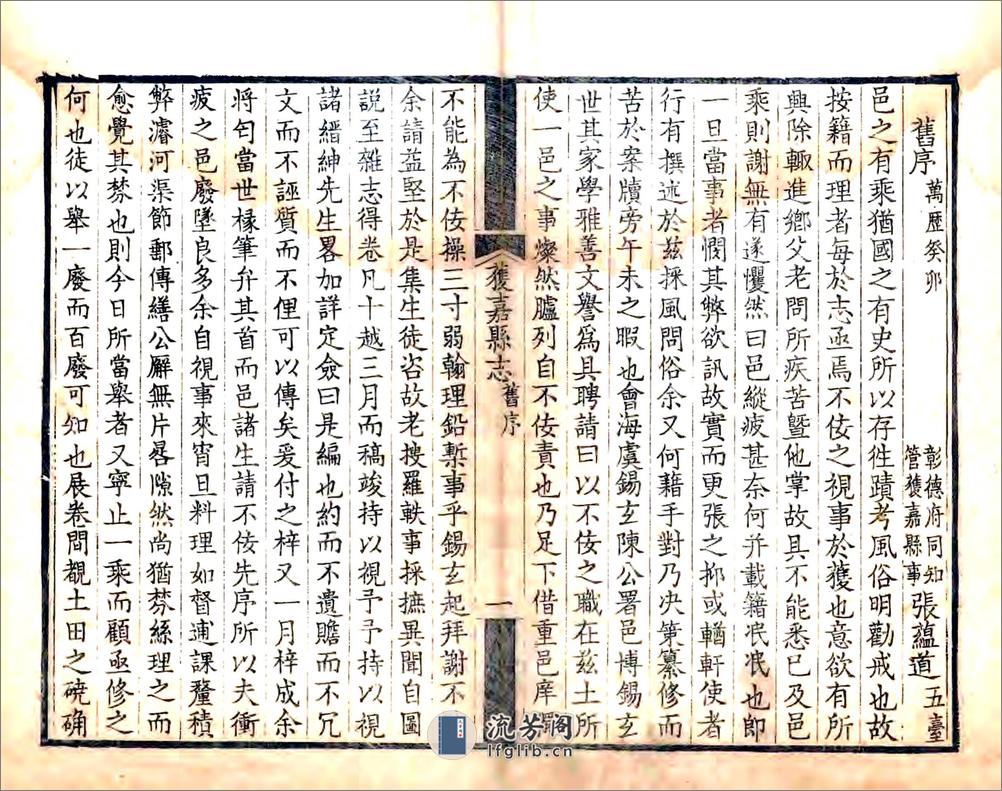 舊序 萬歷癸卯 彰德府同知管獲嘉縣事張蘊道 五臺
邑之有乘猶國之有史所以存徃蹟考風俗明勸戒也故
按籍而理者每於志亟焉不佞之視事於獲也意欲有所
興除輙進鄉父老問所疾苦暨他掌故具不能悉已及邑
乘則謝無有遂懼然曰邑縱疲甚奈何并載籍泯泯也即
一旦當事者憫其弊欲訊故實而更張之抑或輶軒使者
行有撰述於兹採風問俗余又何藉手對乃决筞纂修而
苦於案牘旁午未之暇也會海虞錫玄陳公署邑博錫玄
世其家學雅善文譽爲具聘請曰以不佞之職在兹土所
使一邑之事燦然臚列自不佞責也乃足下借重邑庠
獲嘉縣志 舊序 一
不能為不佞操三寸弱翰理鉛槧事乎錫玄起拜謝不
余請益堅於是集生徒咨故老搜羅軼事採摭異聞自圖
說至雜志得卷凡十越三月而稿竣持以視予予持以視
諸縉紳先生畧加詳定僉曰是編也約而不遺贍而不冗
文而不誣質而不俚可以傳矣爰付之梓又一月梓成余
將匄當世椽筆弁其首而邑諸生請不佞先序所以夫衝
疲之邑廢墜良多余自視事來宵旦料理如督逋課釐積
弊濬河渠節郵傳繕公廨無片晷隙然尚猶棼絲理之而
愈覺其棼也則今日所當舉者又寧止一乘而顧亟修之
何也徒以舉一廢而百廢可知也展卷間覩土田之硗确
流芳閣
lfglib.cn